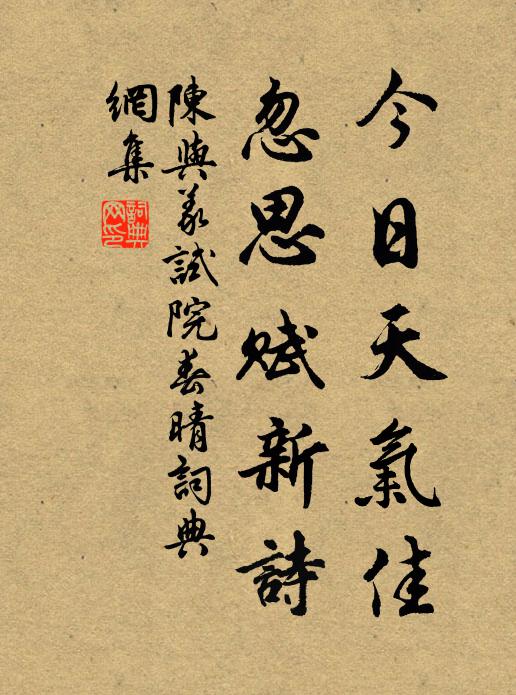 今日天氣佳
忽思賦新詩
陳與義試院春晴詞典
網集
詞典
网印